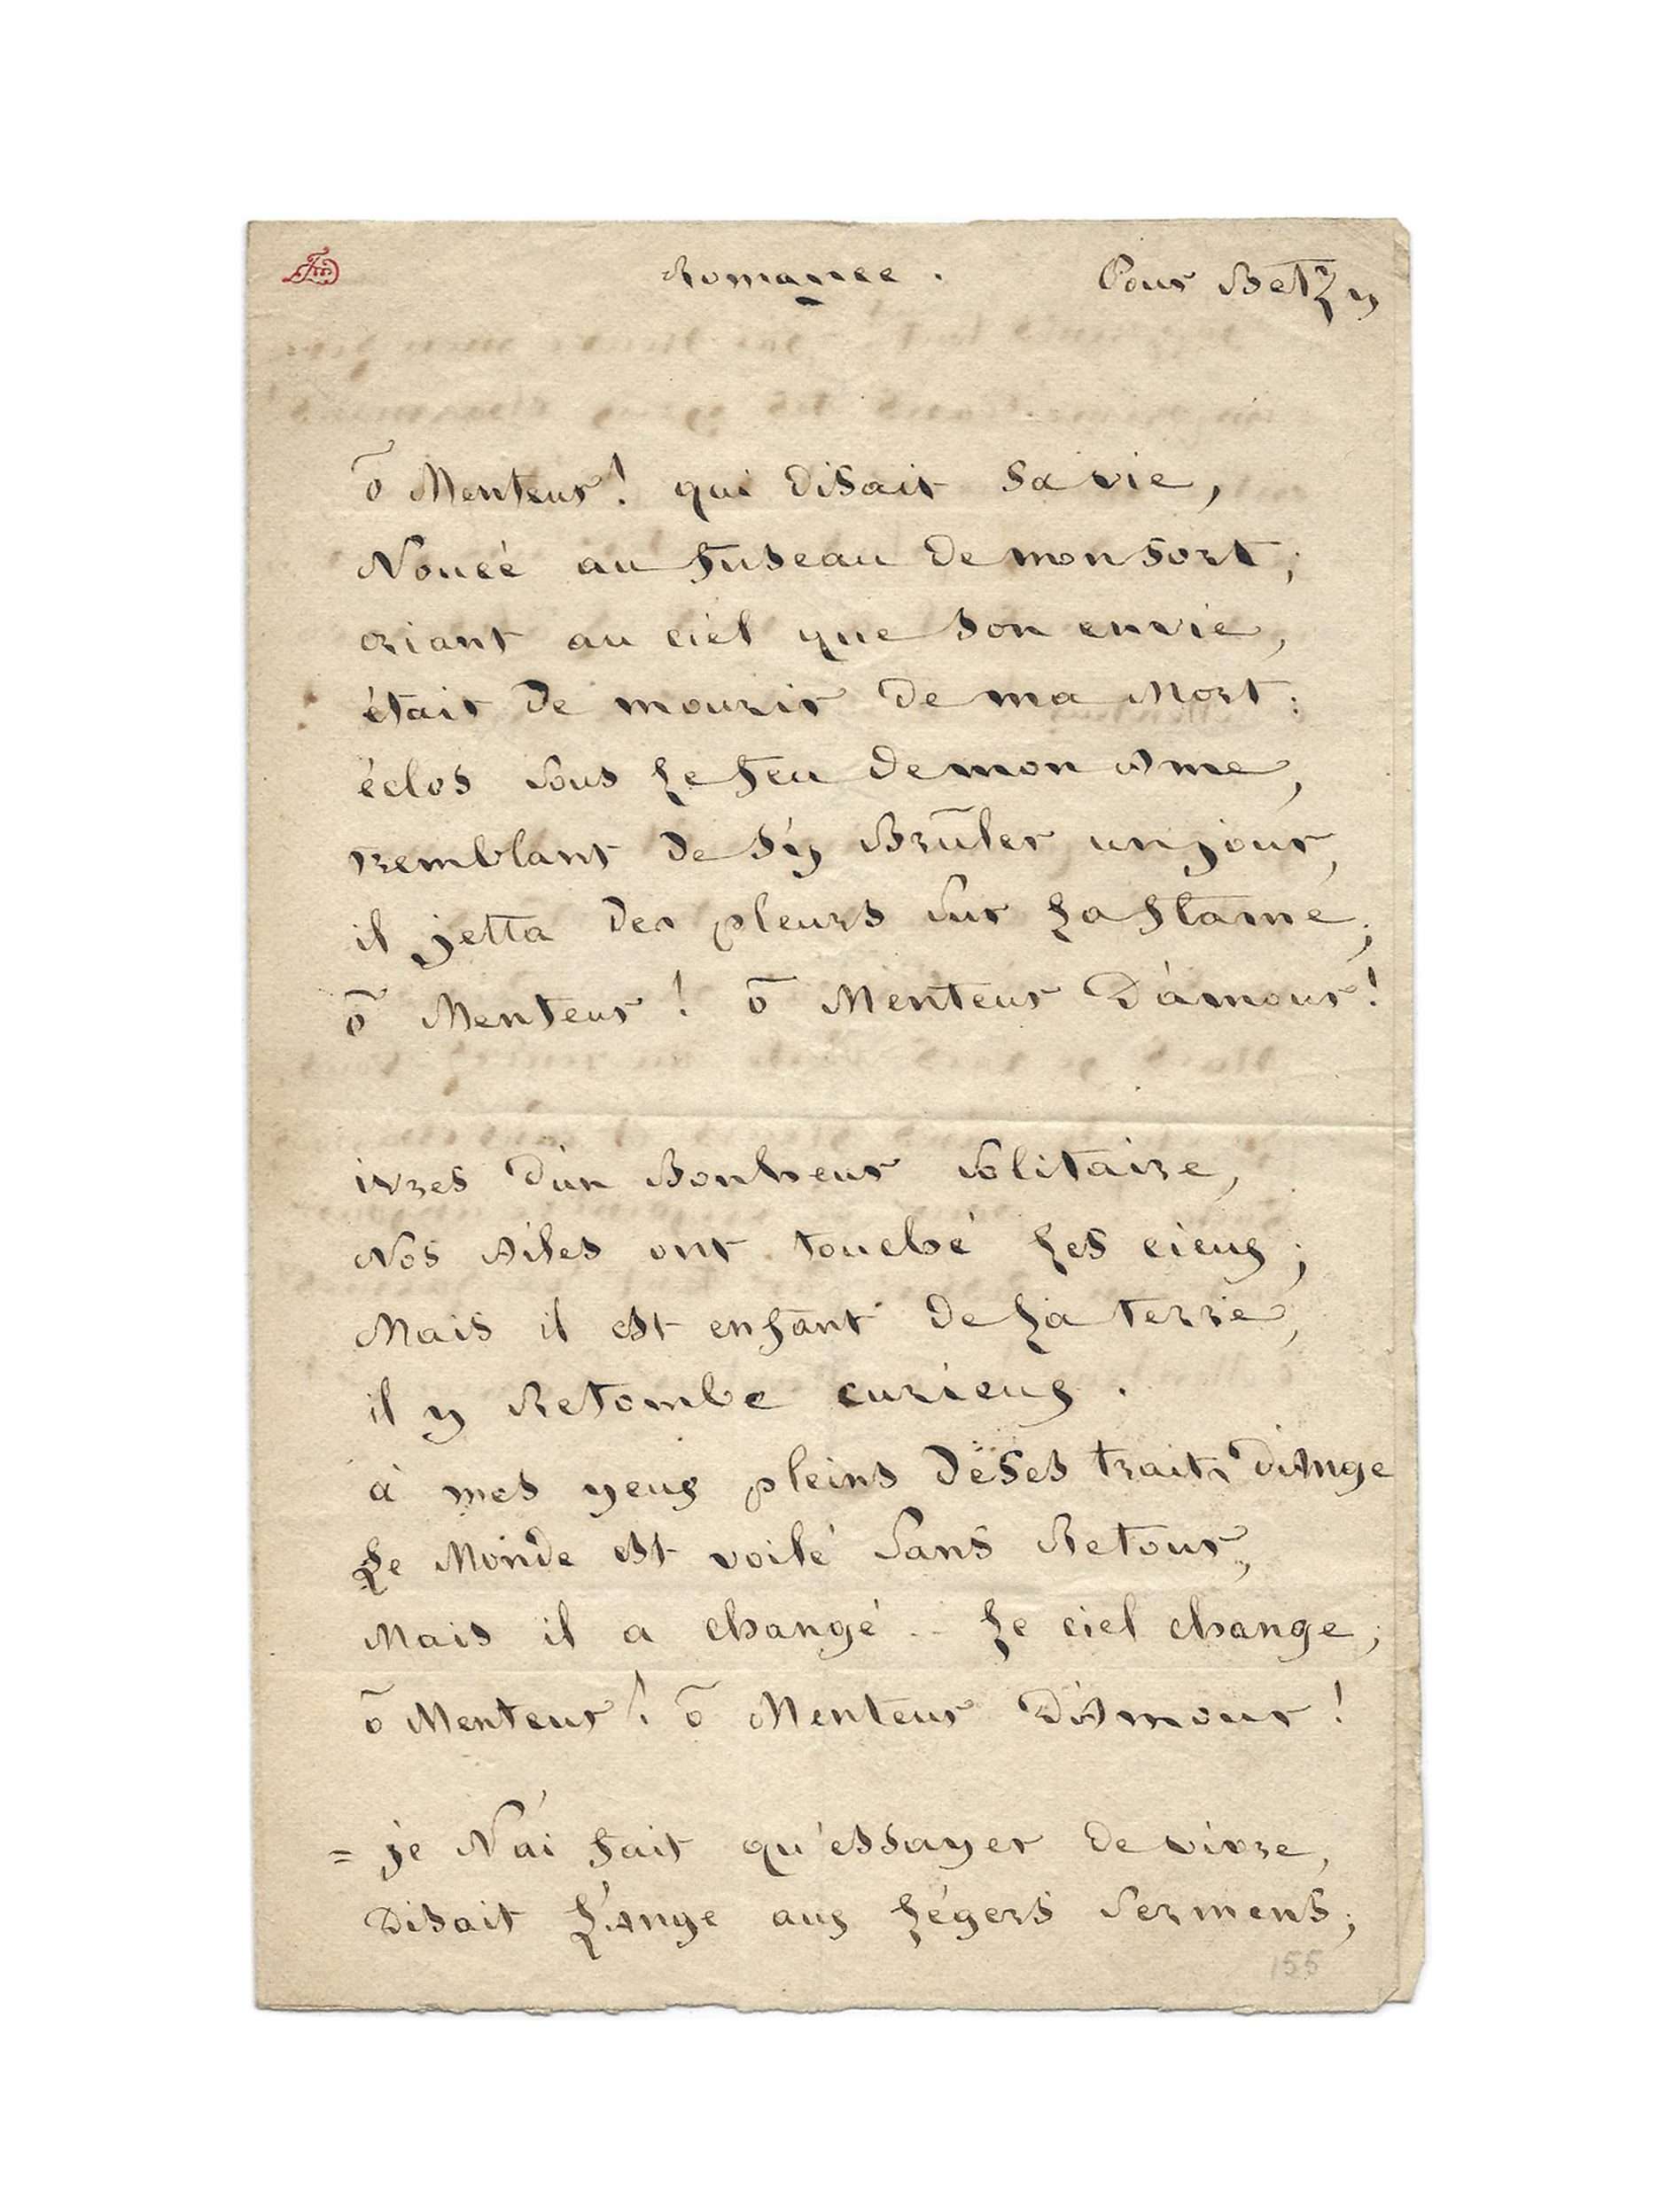 Romance. Pour Betzy
ô Menteur! qui disait sa vie,
Nouéé au fuseau de mon sort;
criant au ciel que son envie,
était de mourir de ma Mort:
éclos sous Le feu de mon âme,
tremblant de s'y Brûler un jour,
il jetta des pleurs sur La flame;
ô Menteur! ô Menteur D'amour!
ivres d'un Bonheur solitaire,
Nos Ailes ont touché Les cieux;
Mais il est enfant de La terre,
il y Retombe curieux.
à mes yeux pleins de ses traits d'Ange
Le Monde est voilé sans Retour,
Mais il a changé.. Le ciel change;
ô Menteur! ô Menteur D'Amour!
= je N'ai fait qu'essayer de vivre,
Disait L'Ange aux Légers sermens;
155